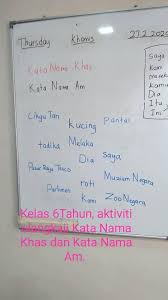 Thursday Khamis 27.2.2020
Kata Nama Khas
Kata Nama Am
Cikgu Tan kucing pantai
tadika Melaka
Dia saya
Pasar Raya Tesco Muzium Negara
Parlimen roti
kam Zoo Negara
Saya
Kam
Kami
Dia
Itu
Ini
Kelas 6Tahun, aktiviti
mengkaji Kata Nama
Khas dan Kata Nama
Am.